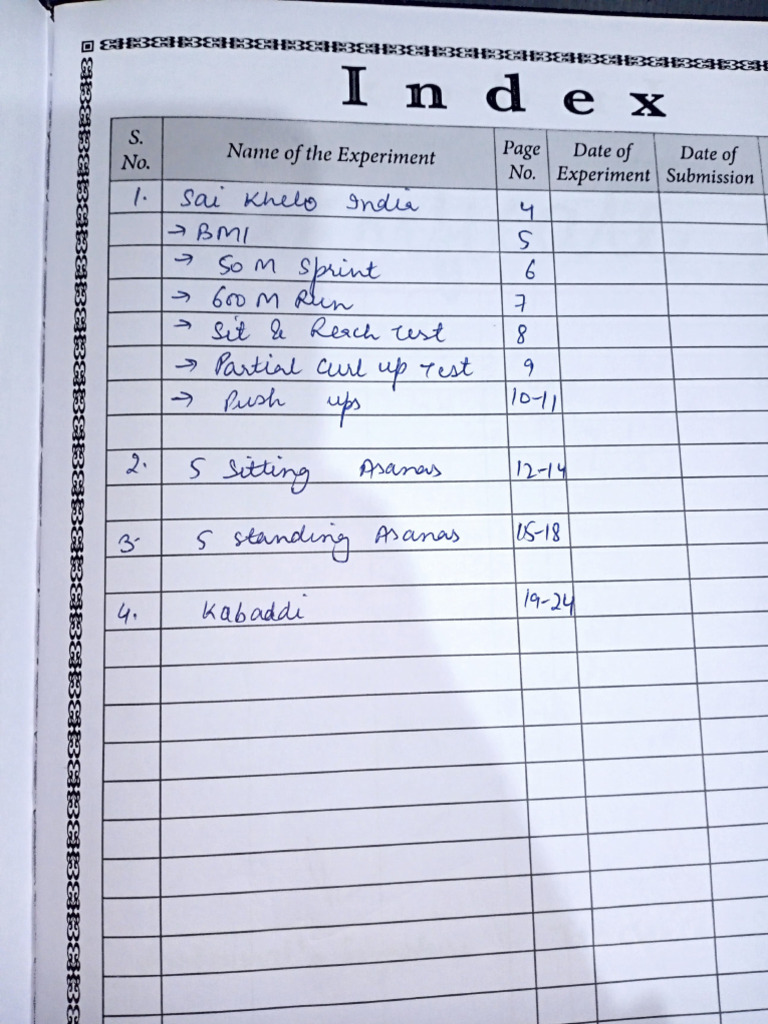 Index
S. No. Name of the Experiment Page No. Date of Experiment Date of Submission
1. Sai Khelo India 4
→ BMI 5
→ 50 M Sprint 6
→ 600 M Run 7
→ Sit & Reach test 8
→ Partial Curl up Test 9
→ Push ups 10-11
2. 5 Sitting Asanas 12-14
3. 5 standing Asanas 15-18
4. Kabaddi 19-24